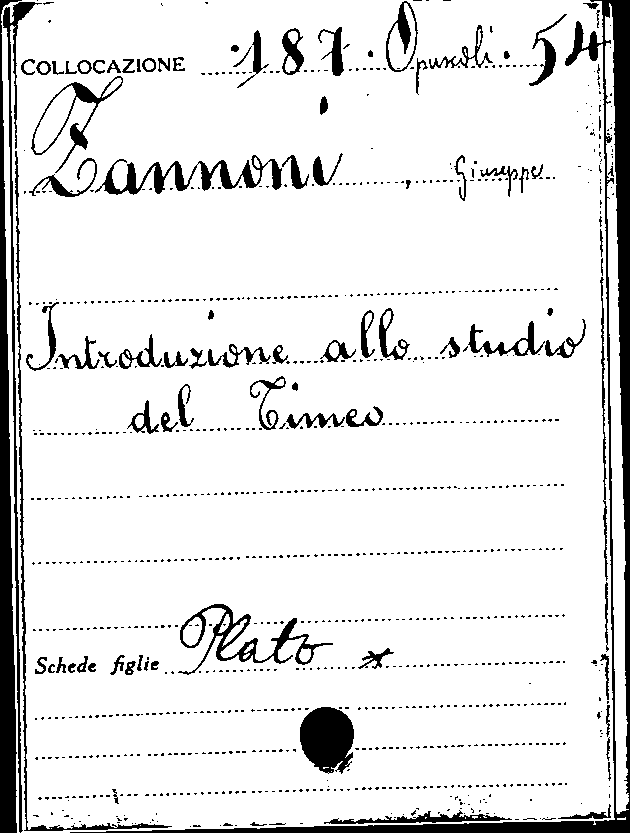 COLLOCAZIONE .187. Opuscoli. 54
Zannoni, Giuseppe
Introduzione allo studio
del Timeo
Schede figlie Plato *